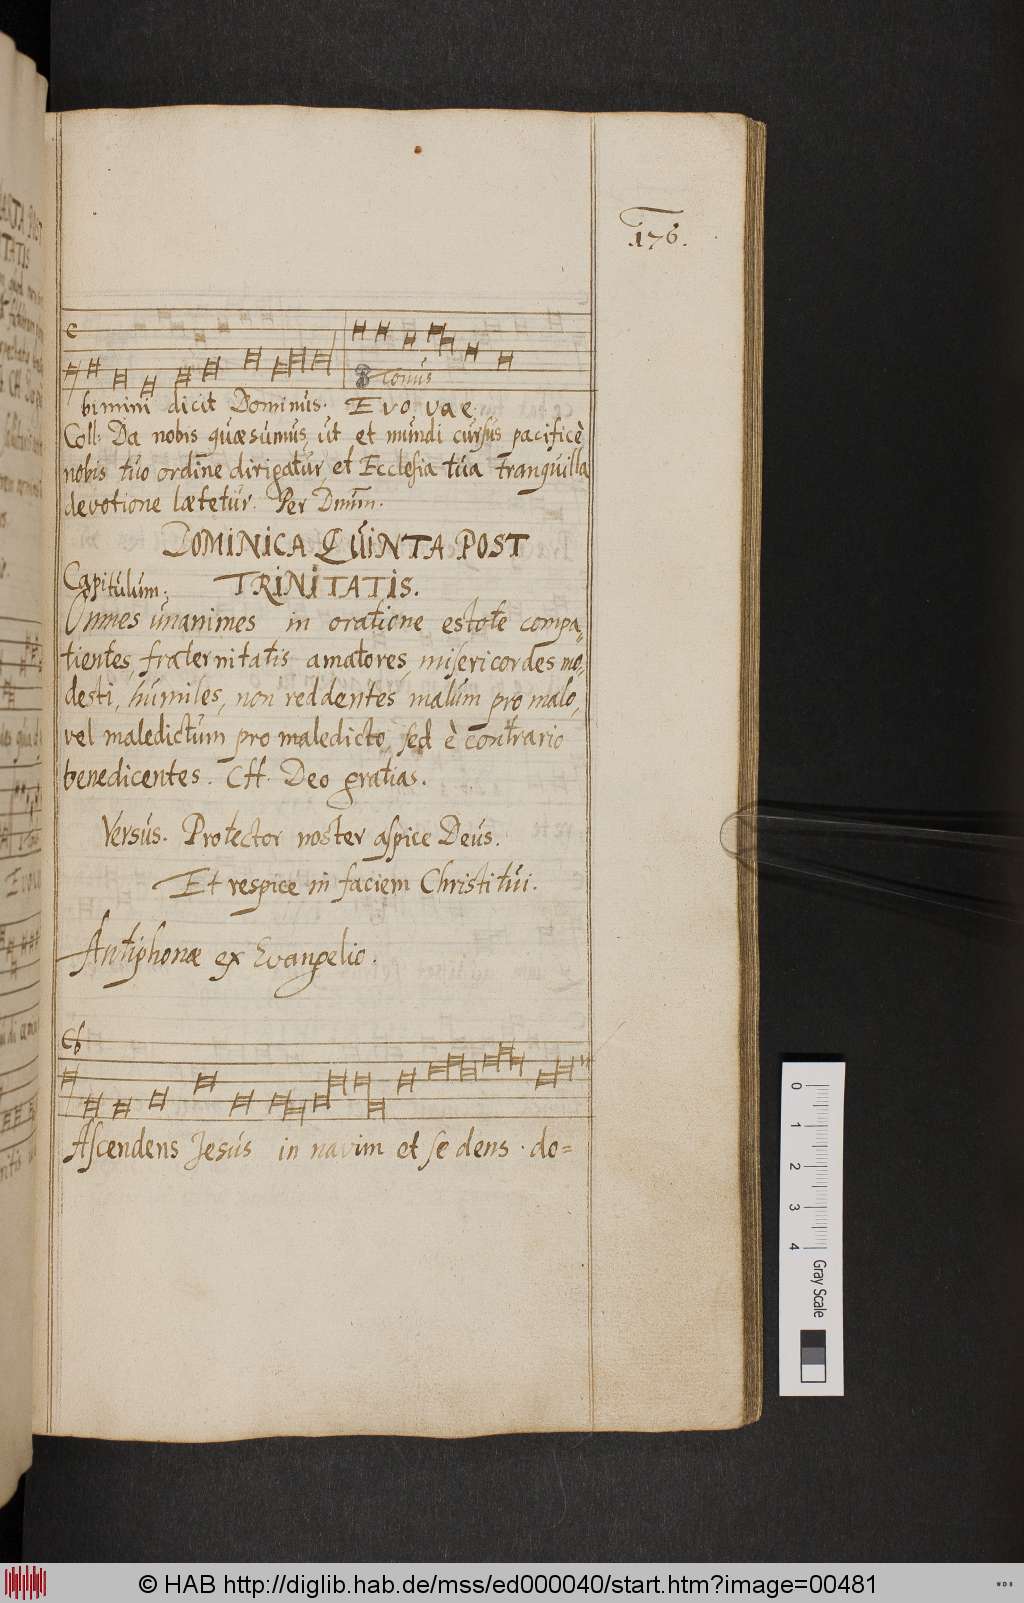 176.
8 Tonus
bimini dicit Dominus. Evovae
Coll: Da nobis quæsumus, ut et mundi cursus pacificè
nobis tuo ordine dirigatur, et Ecclesia tua tranquilla
devotione lætetur. Per Dnum.
DOMINICA QUINTA POST
TRINITATIS.
Capitulum:
Omnes unanimes in oratione estote compa-
tientes, fraternitatis amatores, misericordes mo-
desti, humiles, non reddentes malum pro malo,
vel maledictum pro maledicto, sed è contrario
benedicentes. CH. Deo gratias.
Versus. Protector noster aspice Deus.
Et respice in faciem Christi tui.
Antiphonæ ex Evangelio.
Ascendens Jesus in navim et sedens. do=
0 1 2 3 4 Gray Scale
© HAB http://diglib.hab.de/mss/ed000040/start.htm?image=00481